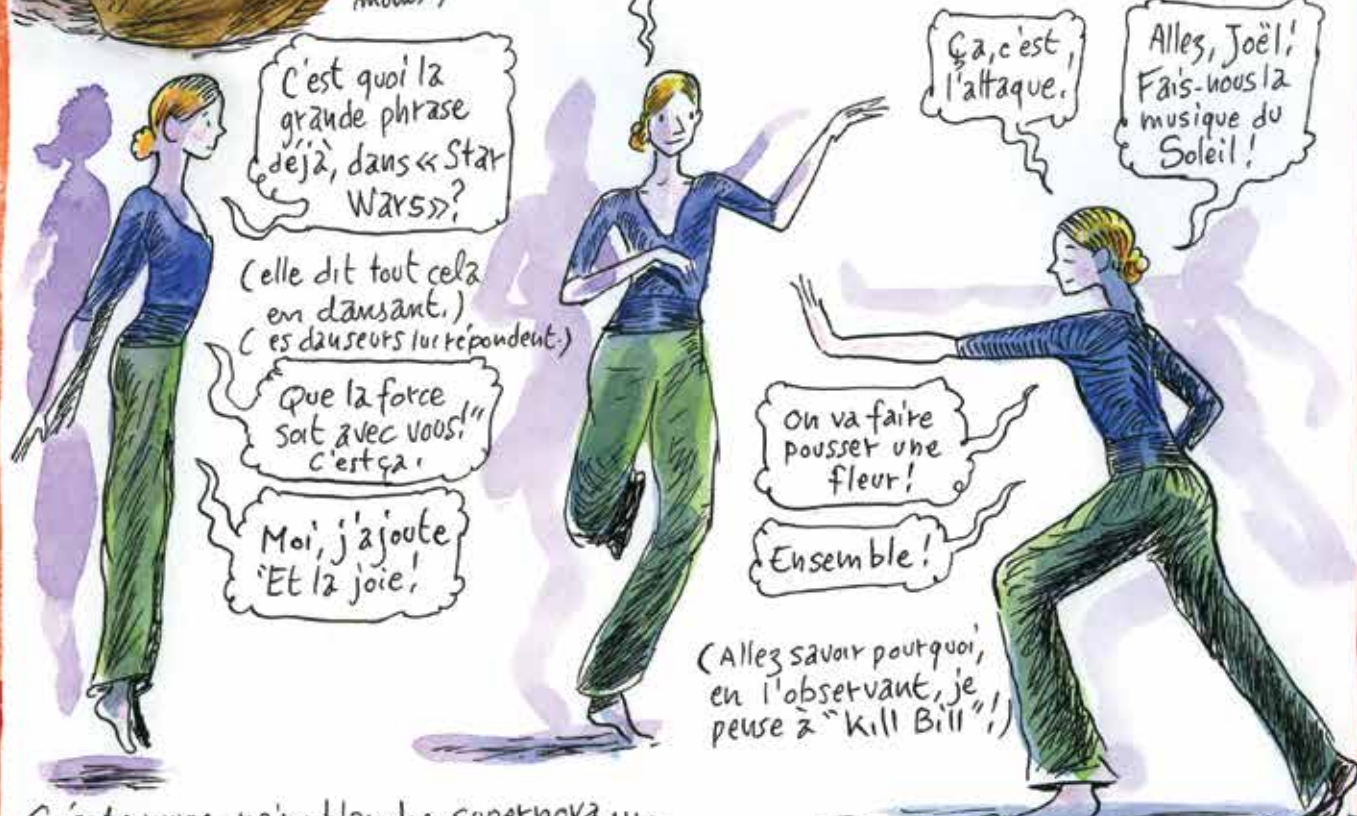 C'est quoi la
grande phrase
déjà, dans « Star
Wars »?
(elle dit tout cela
en dansant.)
( es danseurs lui répondent.)
Que la force
soit avec vous!"
C'est ça.
Moi, j'ajoute
"Et la joie!
Ça, c'est
l'attaque.
Allez, Joël!
Fais-nous la
musique du
Soleil!
On va faire
pousser une
fleur!
Ensemble!
(Allez savoir pourquoi,
en l'observant, je
pense à "Kill Bill"!)